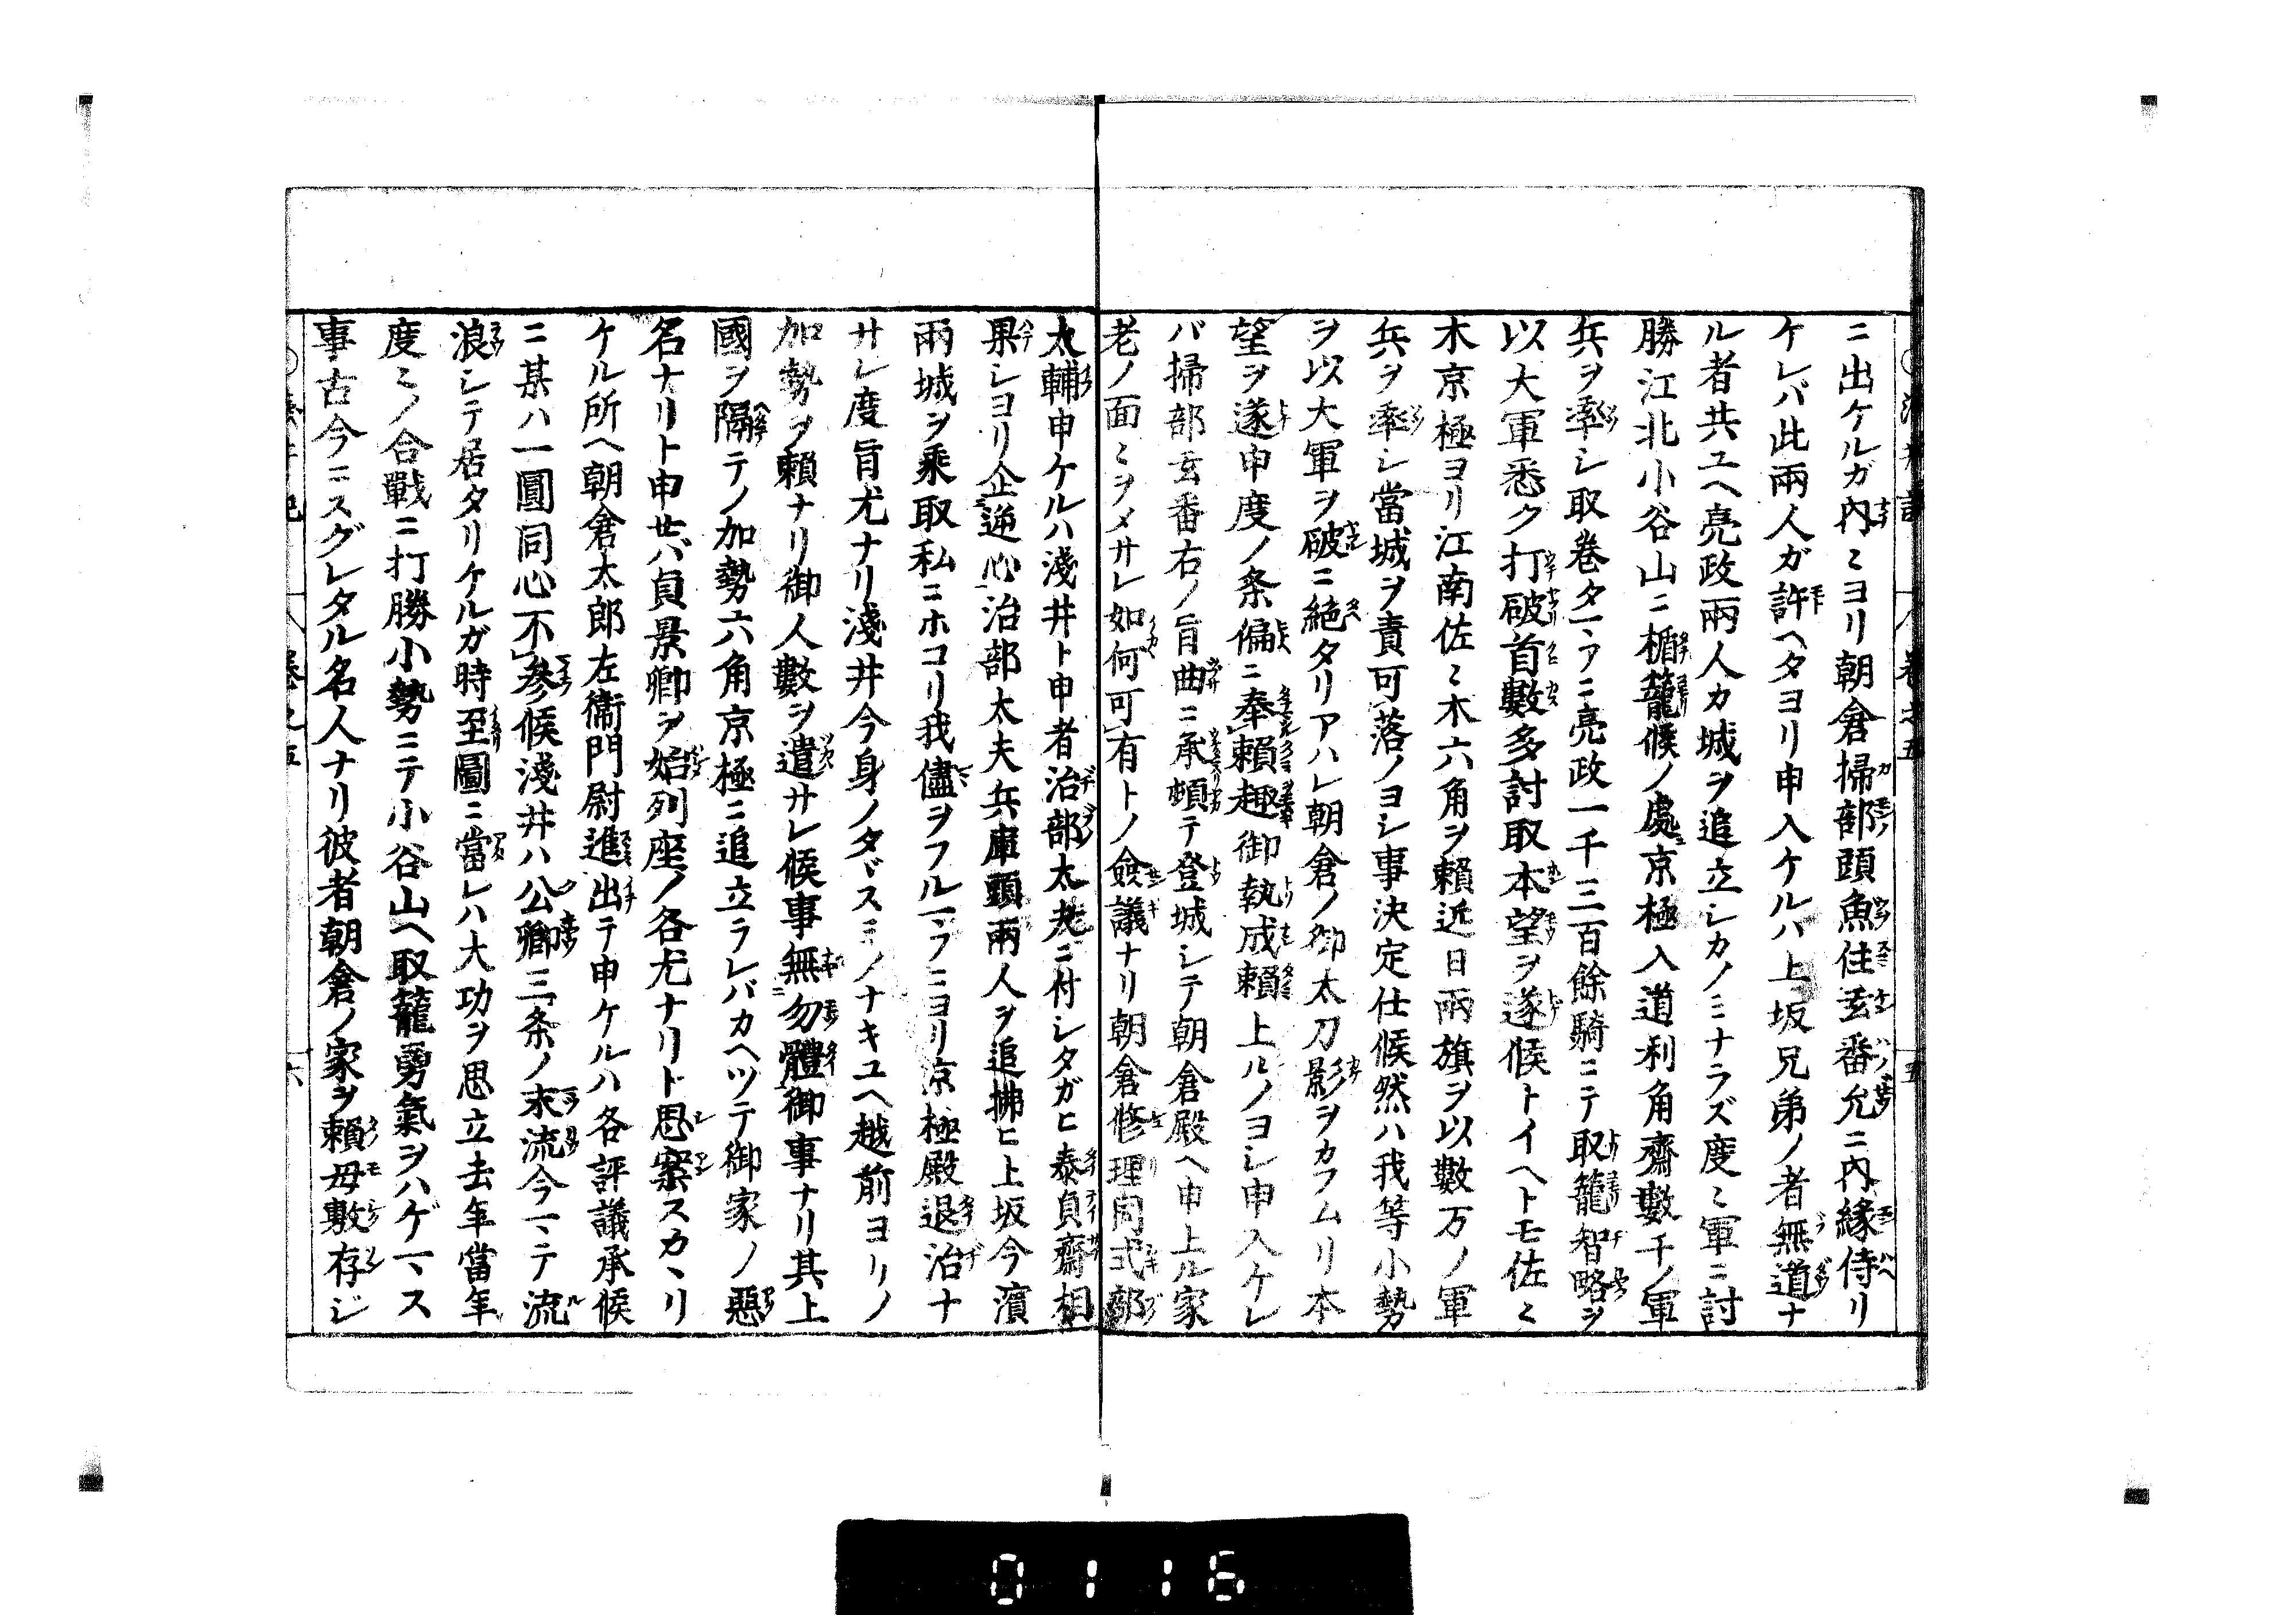 ニ出ケルガ内〻ヨリ朝倉掃部頭魚住玄番允ニ內縁侍リ
ケレバ此兩人ガ許ヘタヨリ申入ケルハ上坂兄弟ノ者無道ナ
ル者共ユヘ亮政兩人カ城ヲ追立シカノミナラズ度〻軍ニ討
勝江北小谷山ニ楯籠候ノ處京極入道利角齋數千ノ軍
兵ヲ率シ取巻タヿアニ亮政一千三百餘騎ニテ取籠智略ヲ
以大軍悉ク打破首數多討取本望ヲ遂候トイヘトモ佐〻
木京極ヨリ江南佐〻木六角ヲ賴近日兩旗ヲ以數万ノ軍
兵ヲ率シ當城ヲ責可落ノヨシ事決定仕候然ハ我等小勢
ヲ以大軍ヲ破ニ絶タリアハレ朝倉ノ御太刀影ヲカフムリ本
望ヲ遂申度ノ条偏ニ奉賴趣御執成賴上ルノヨシ申入ケレ
バ掃部玄番右ノ旨曲ニ承頓テ登城シテ朝倉殿ヘ申上ル家
老ノ面〻ヲメサレ如何可有トノ僉議ナリ朝倉修理同式部
太輔申ケルハ淺井ト申者治部太夫ニ付シタガヒ泰貞齋相
果シヨリ企逆心治部太夫兵庫頭兩人ヲ追拂ヒ上坂今濱
兩城ヲ乘取私ニホコリ我儘ヲフルマフニヨリ京極殿退治ナ
サレ度旨尤ナリ淺井今身ノタヾスミノナキユヘ越前ヨリノ
加勢ヲ賴ナリ御人數ヲ遣サレ候事無勿體御事ナリ其上
國ヲ隔テノ加勢六角京極ニ追立ラレバカヘツテ御家ノ惡
名ナリト申せバ貞景卿ヲ始列座ノ各尤ナリト思案スカヽリ
ケル所ヘ朝倉太郎左衞門尉進出テ申ケルハ各評議承候
ニ某ハ一圓同心不參候淺井ハ公卿三条ノ末流今マテ流
浪シテ居タリケルガ時至圖ニ當レハ大功ヲ思立去年當年
度〻ノ合戰ニ打勝小勢ニテ小谷山ヘ取籠勇氣ヲハゲマス
事古今ニスグレタル名人ナリ彼者朝倉ノ家ヲ賴母敷存ジ